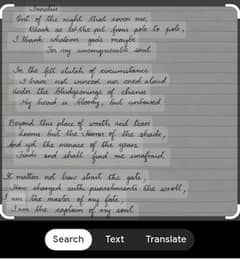 Invictus
Out of the night that cover me,
Black as the pit from pole to pole,
I thank whatever gods maybe
For my unconquerable soul
In the fell clutch of circumstance
I have not winced nor cried aloud
Under the bludgeonings of chance
My head is bloody, but unbowed
Beyond this place of wrath and tears
Looms but the Horror of the shade,
And yet the menace of the years
Finds and shall find me unafraid
It matters not how strait the gate,
How charged with punishments the scroll,
I am the master of my fate,
I am the captain of my soul
Search Text Translate